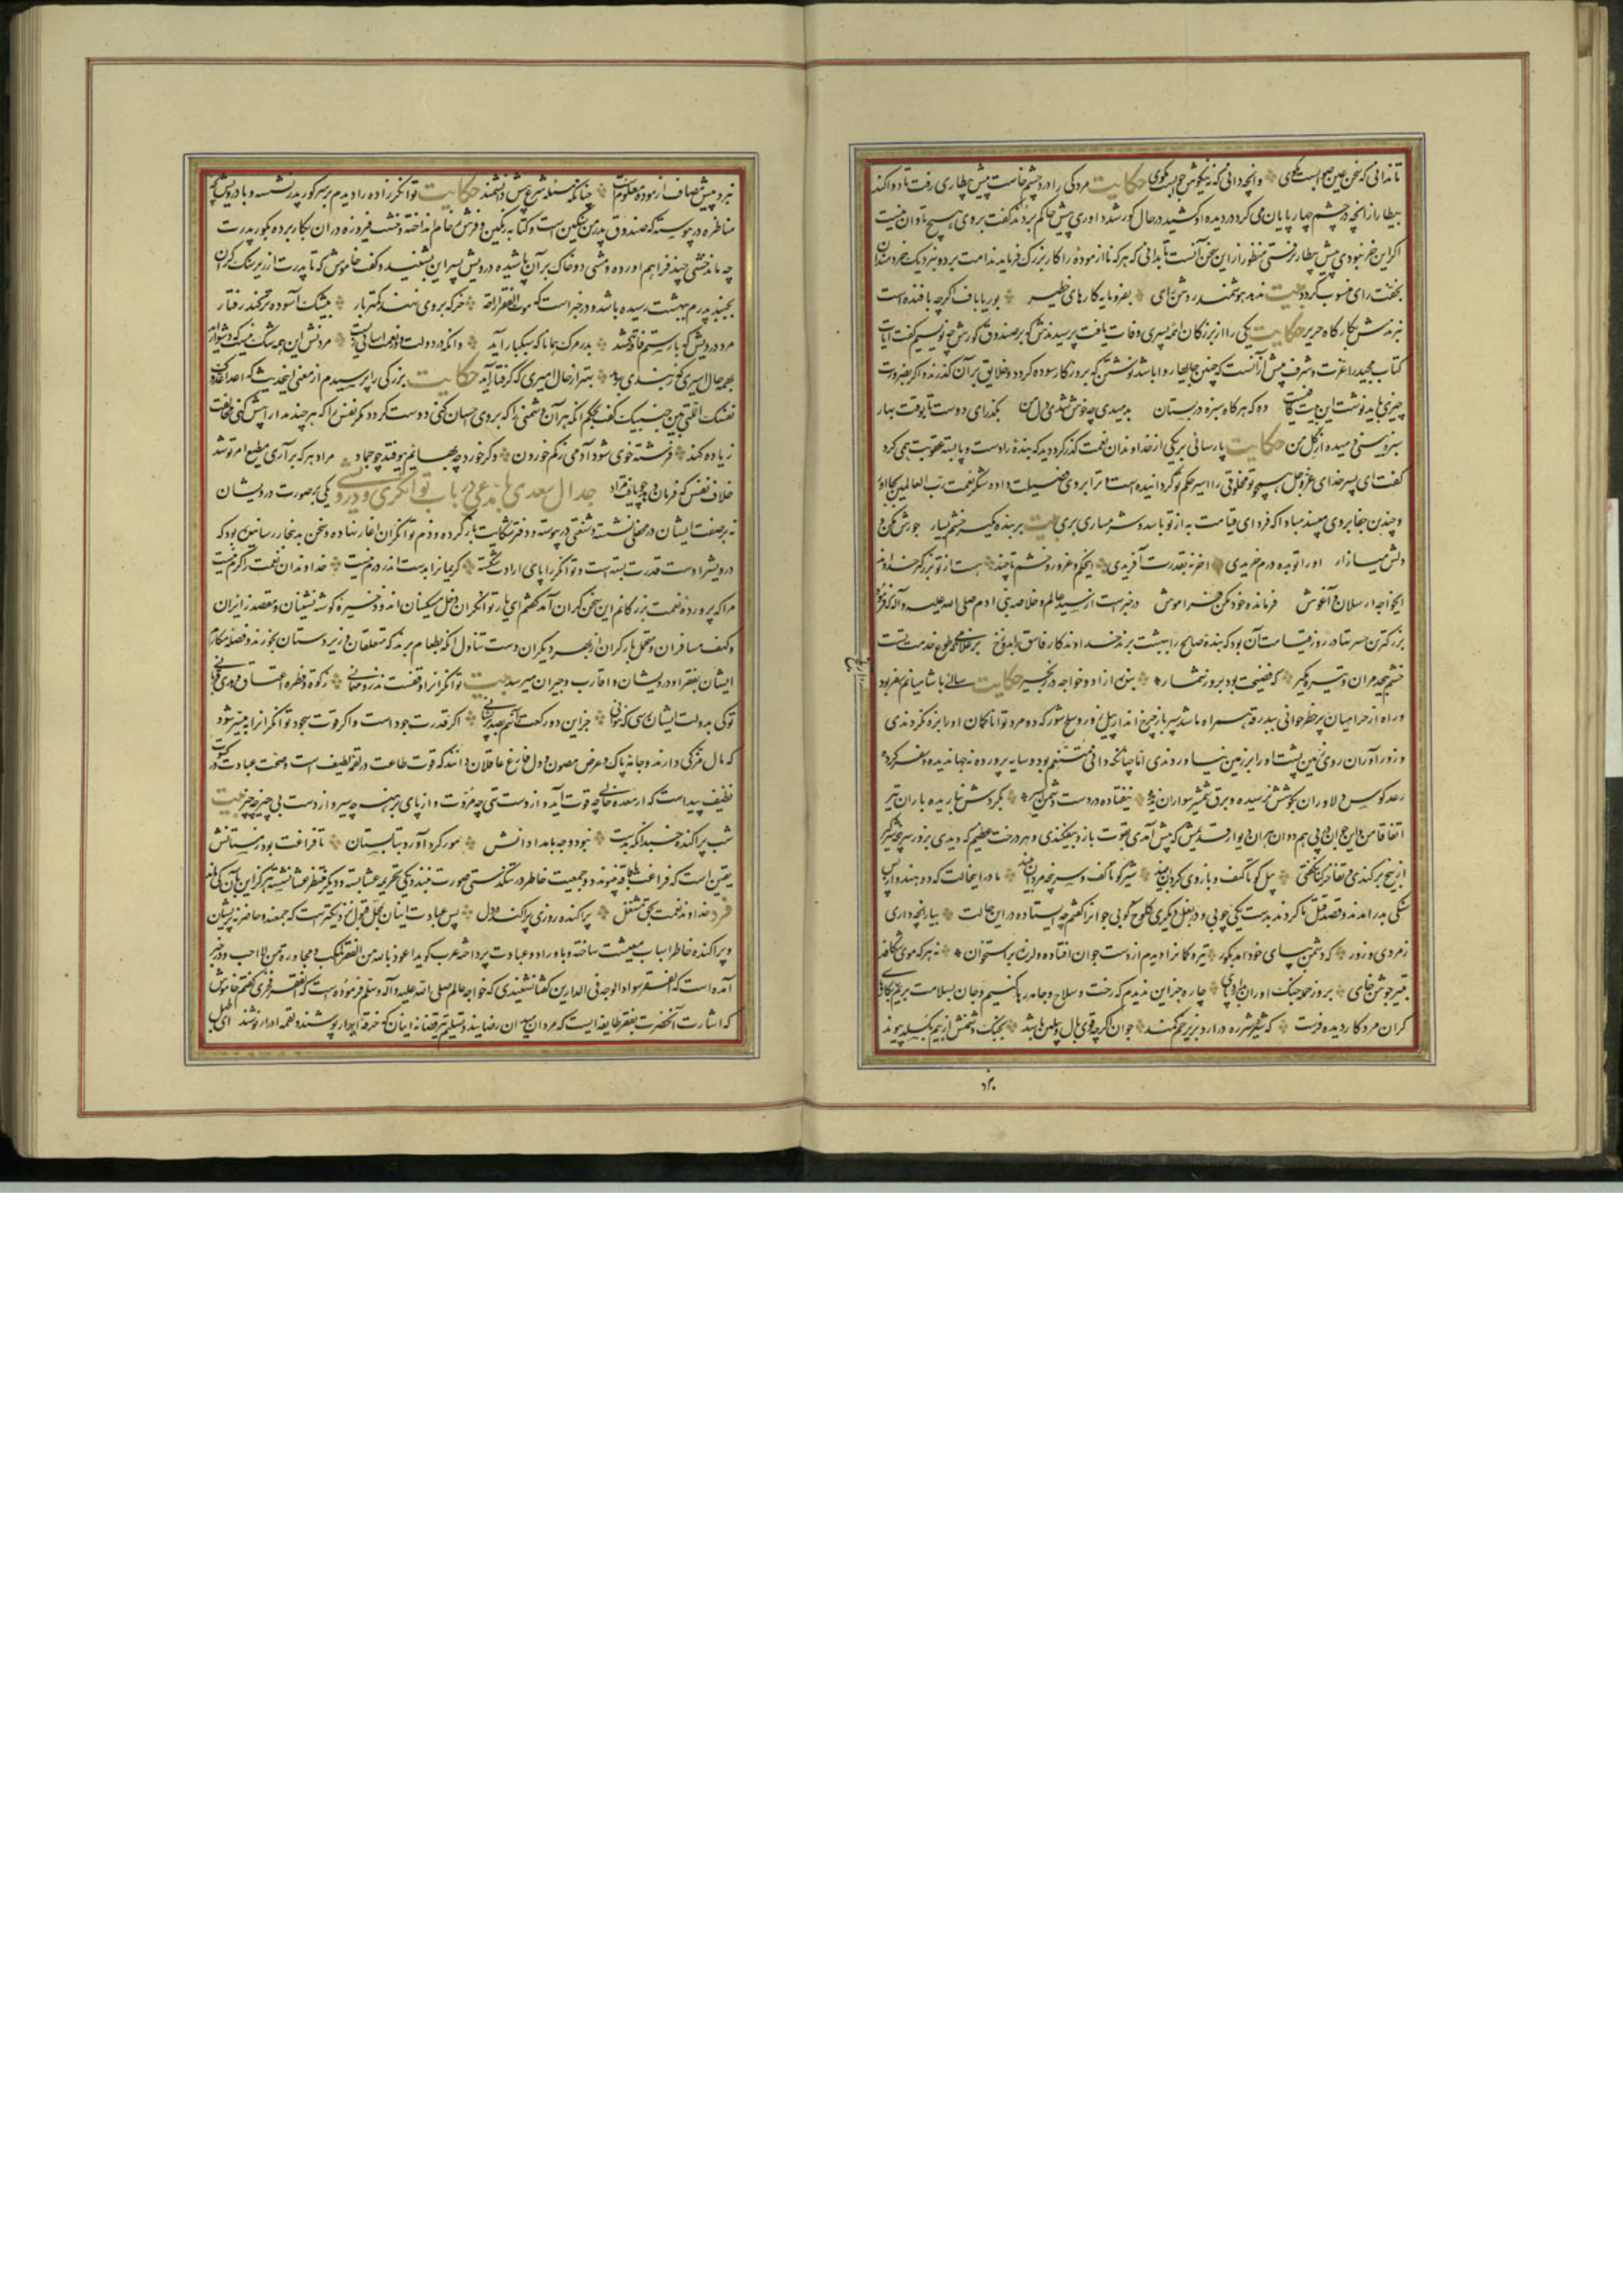 تا ندانی که سخن عین صوابست مگوی وانچه دانی که نه نیکوش جوابست مگوی حکایت مردکی را درد چشم خاست پیش بیطاری رفت تا دوا کند
بیطار از انچه در چشم چهار پایان می کرد در دیده او کشید در حال کور شد داوری پیش حاکم بردند گفت بروی هیچ تاوان نیست
اگر این خر نبودی پیش بیطار نرفتی منظور از این سخن آنست تا بدانی که هر که ناآزموده را کار بزرک فرماید ندامت برد و نزدیک خردمندان
بخفت رای منسوب گردد بیت ندهد هوشمند روشن رای بفرومایه کارهای خطیر بوریا باف اگرچه بافنده است
نبرندش بکارگاه حریر حکایت یکی را از بزرکان ائمه پسری وفات یافت پرسیدندش که بر صندوق گورش چه نویسیم گفت آیات
کتاب مجید را عزت و شرف بیش از آنست که چنین جایها روا باشد نوشتن که بروزگار سوده گردد و خلایق بر آن گذرند و اگر بضرورت
چیزی باید نوشت این بیت کافیست وه که هرگاه سبزه در بستان بدمیدی چه خوش شدی دل من بگذر ای دوست تا بوقت بهار
سبزه بینی دمیده از گل من حکایت پارسائی بر یکی از خداوندان نعمت گذر کرد و دید که بنده را دست و پا بسته عقوبت همی کرد
گفت ای پسر خدای عز و جل همچو تو مخلوقی را اسیر حکم تو گردانیده است و ترا بر وی فضیلت داده شکر نعمت رب العالمین بجا آر
و چندین جفا بر وی مپسند مبادا که فردای قیامت به از تو باشد و شرمساری بری بیت بر بنده مگیر خشم بسیار جورش مکن و
دلش میازار اورا تو بده درم خریدی آخر نه بقدرت آفریدی این حکم و غرور و خشم تا چند هست از تو بزرگتر خداوند
ای خواجه ارسلان و آغوش فرمانده خود مکن فراموش در خبرست از سید عالم و خلاصه بنی آدم صلی الله علیه و آله که فرمود
بزرکترین حسرتها در روز قیامت آن بود که بنده صالح را ببهشت برند خداوندکار فاسق را بدوزخ بر غلامی که طوع خدمت تست
خشم بیحد مران و تیره مگیر که فضیحت بود بروز شمار بنده آزاد و خواجه در زنجیر حکایت سالی با شامیانم سفر بود
و راه از حرامیان پر خطر جوانی ببدرقه همراه ما شد
و زورآوران روی زمین پشت او را بر زمین نیاوردندی اما چنانکه دانی متنعم بود و سایه پرورده نه جهاندیده و سفر کرده
رعد کوس دلاوران بگوشش نرسیده و برق شمشیر سواران ندیده نیفتاده در دست دشمن اسیر بگردش نباریده باران تیر
اتفاقا من و این جوان در پی هم دوان هر ان دیوار قدیمش که پیش آمدی بقوت بازو بیفکندی و هر درخت عظیم که دیدی بزور سرپنجه
از بیخ برکندی و تفاخرکنان گفتی پیل کو تا کتف و بازوی گردان بیند شیر کو تا کف و سرپنجه مردان بیند ما در این حالت که دو هندو از پس
سنگی بدر آمدند و قصد قتل ما کردند بدست یکی چوبی و در بغل دیگری کلوخ کوبی جوانرا گفتم چه ایستاده در این حالت بیار انچه داری
ز مردی و زور که دشمن بپای خود آمد بگور تیر و کمانرا دیدم از دست جوان افتاده و لرزه بر استخوان نه هر که موی شکافد
بتیر جوشن خای بروز حمله جنگ آوران بدارد پای چاره جز این ندیدم که رخت و سلاح و جامه رها کنیم و جان بسلامت بریم بکارهای
گران مرد کاردیده فرست که شیر شرزه درآرد بزیر خم کمند جوان اگرچه قوی یال و پیلتن باشد بجنگ دشمنش از بیم بگسلد پیوند
نبرد پیش مصاف آزموده معلومست چنانکه مسئله شرع پیش دانشمند حکایت توانگرزاده را دیدم بر سر گور پدر نشسته و با درویش بچه
مناظره در پیوسته که صندوق پدرم سنگین است و کتابه رنگین و فرش رخام انداخته و خشت فیروزه در ان بکار برده بگور پدرت
چه ماند خشتی چند فراهم اورده و مشتی دو خاک بر آن پاشیده درویش پسر این بشنید و گفت خاموش که تا پدرت از زیر سنگ گران
بجنبد پدرم ببهشت رسیده باشد و در خبر است که موت الفقراء راحة خر که بر وی نهند کمتر بار بیشک آسوده تر کند رفتار
مرد درویش که بار ستم فاقه کشید بدر مرگ همانا که سبکبار آید وانکه در دولت و در نعمت و آسانی زیست مردنش این همه شک نیست که دشوار آید
بهمه حال اسیری که ز بندی برهد بهتر از حال امیری که گرفتار آید حکایت بزرگی را پرسیدم از معنی این حدیث که اعدا عدوک
نفسک التی بین جنبیک گفت بحکم آنکه هر آن دشمنی را که بر وی احسان کنی دوست گردد مگر نفس را که هرچند مدارا بیش کنی مخالفت
زیاده کند فرشته خوی شود آدمی ز کم خوردن و گر خورد چو بهائم بیوفتد چو جماد مراد هر که برآری مطیع امر تو شد
خلاف نفس که فرمان دهد چو یافت مراد جدال سعدی با مدعی در باب توانگری و درویشی یکی بر صورت درویشان
نه بر صفت ایشان در محفلی نشسته و شنعتی در پیوسته و دفتر شکایت باز کرده و ذم توانگران آغاز نهاده و سخن بدینجا رسانیده بود که
درویشرا دست قدرت بسته است و توانگر را پای ارادت شکسته کریمانرا بدست اندر درم نیست خداوندان نعمت را کرم نیست
مرا که پرورده نعمت بزرگانم این سخن گران آمد گفتم ای یار توانگران دخل مسکینان اند و ذخیره گوشه نشینان و مقصد زائران
و کهف مسافران و متحمل بار گران از بهر دیگران دست تناول آنکه بطعام برند که متعلقان و زیردستان بخورند و فضله مکارم
ایشان بفقرا و درویشان و اقارب و جیران میرسد بیت توانگرانرا وقفست و نذر و مهمانی زکوة و فطره و اعتاق و هدی و قربانی
تو کی بدولت ایشان رسی که نتوانی جز این دو رکعت و آنهم بصد پریشانی اگر قدرت جود است و اگر قوت سجود توانگرانرا به میسر شود
که مال مزکی دارند و جامه پاک و عرض مصون و دل فارغ عاقلان دانند که قوت طاعت در لقمه لطیف است و صحت عبادت در کسوت
نظیف پیداست که از معده خالی چه قوت آید و از دست تهی چه مروت و از پای برهنه چه سیر و از دست بی چیز چه خیر بیت
شب پراکنده خسبد آنکه پدید نبود وجه بامدادانش مور گرد آورد بتابستان تا فراغت بود زمستانش
یقین است که فراغت با فاقه نپیوندد و جمعیت خاطر در تنگدستی صورت نبندد یکی تحریمه عشا بسته و دیگر منتظر عشا نشسته هرگز این بآن کی ماند
فرد خداوند نعمت بحق مشتغل پراکنده روزی پراکنده دل پس عبادت اینان بمحل قبول نزدیکترست که جمعند و حاضر نه پریشان
و پراکنده خاطر اسباب معیشت ساخته و باوراد و عبادت پرداخته عرب گوید اعوذ بالله من الفقر المکب و مجاورة من لا احب و در خبر
آمده است که الفقر سواد الوجه فی الدارین گفتا نشنیدی که خواجه عالم صلی الله علیه و آله و سلم فرموده است که الفقر فخری گفتم خاموش
که اشارت آنحضرت بفقر طایفه ایست که مردان میدان رضایند و تسلیم تیر قضا نه اینان که خرقه ابرار پوشند و لقمه ادرار نوشند ای طبل